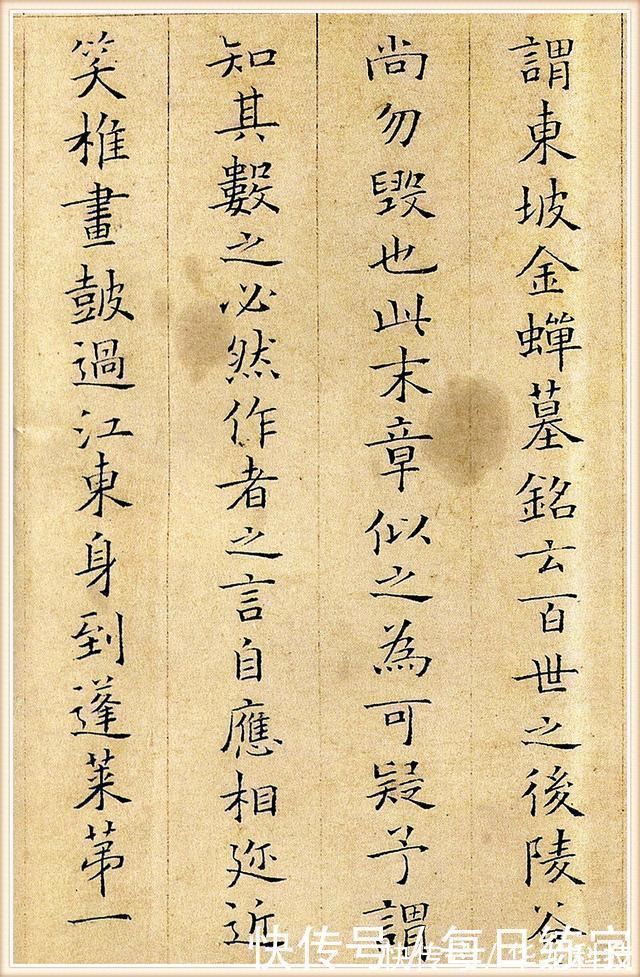 謂東坡金蟬墓銘云百世之後陵谷
尚勿毀也此末章似之為可疑予謂
知其數之必然作者之言自應相迩近
笑椎畫皷過江東身到蓬萊苐一
快传号/每日练字